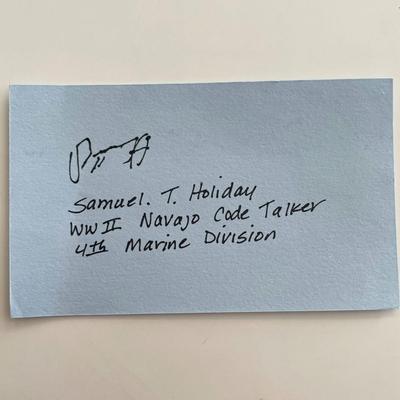 Samuel. T. Holiday
WW II Navajo Code Talker
4th Marine Division